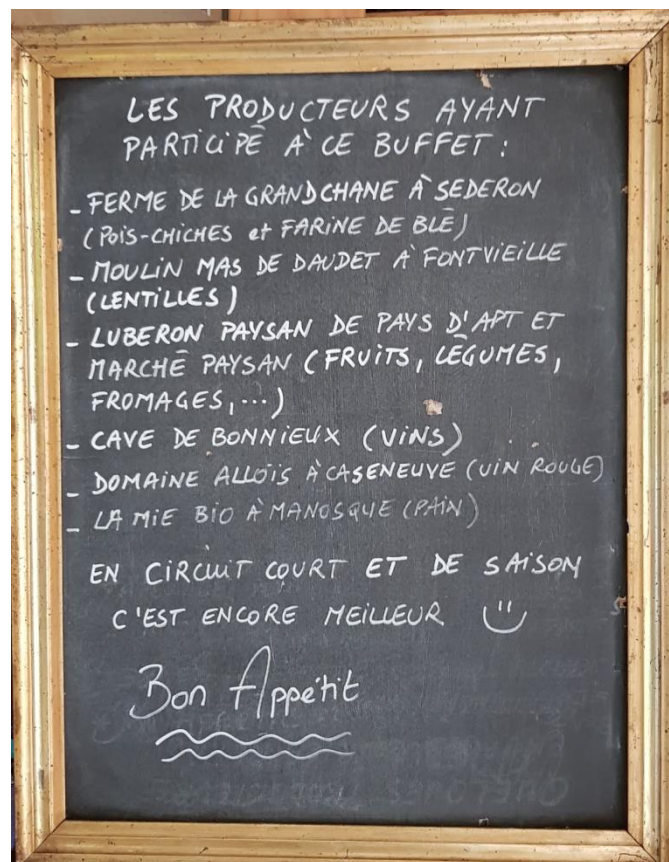 LES PRODUCTEURS AYANT
PARTICIPÉ À CE BUFFET :
- FERME DE LA GRANDCHANE À SEDERON
(POIS-CHICHES et FARINE DE BLÉ)
- MOULIN MAS DE DAUDET À FONTVIEILLE
(LENTILLES)
- LUBERON PAYSAN DE PAYS D'APT ET
MARCHÉ PAYSAN (FRUITS, LÉGUMES,
FROMAGES, ...)
- CAVE DE BONNIEUX (VINS)
- DOMAINE ALLOIS À CASENEUVE (VIN ROUGE)
- LA MIE BIO À MANOSQUE (PAIN)
EN CIRCUIT COURT ET DE SAISON
C'EST ENCORE MEILLEUR
Bon Appétit